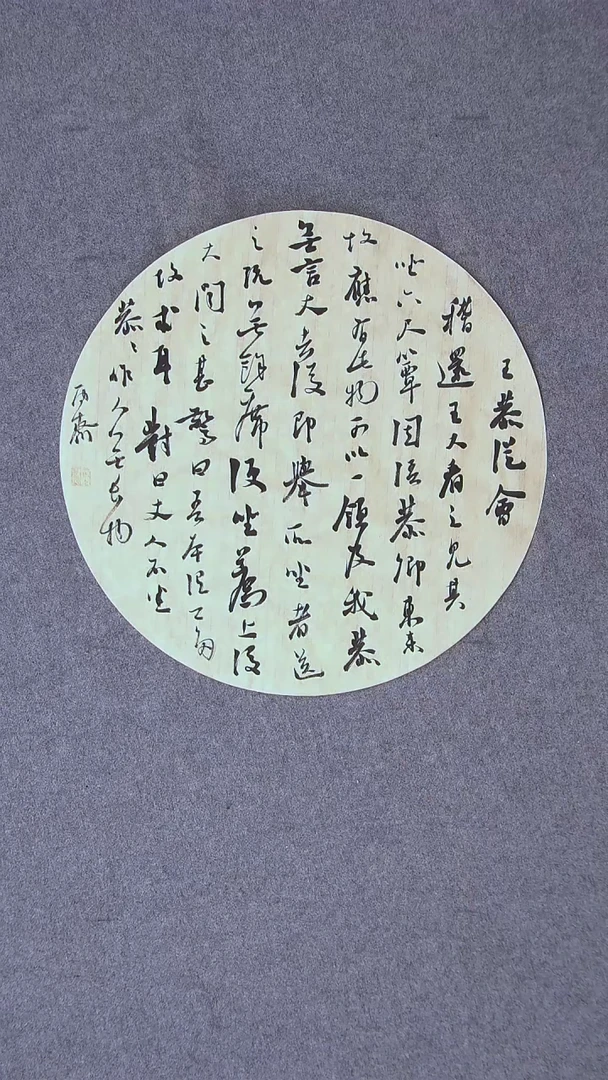 王恭從會
稽還王大看之見其
坐六尺簟因語恭卿東來
故應有此物可以一領及我恭
無言大去後即舉所坐者送
之既無餘席便坐薦上後
大聞之甚驚曰吾本謂卿多
故求耳對曰丈人不悉
恭〻作人無長物